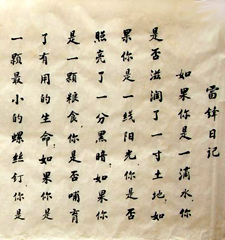 雷锋日记
如果你是一滴水,你
是否滋润了一寸土地,如
果你是一线阳光,你是否
照亮了一分黑暗,如果你
是一颗粮食,你是否哺育
了有用的生命,如果你是
一颗最小的螺丝钉,你是